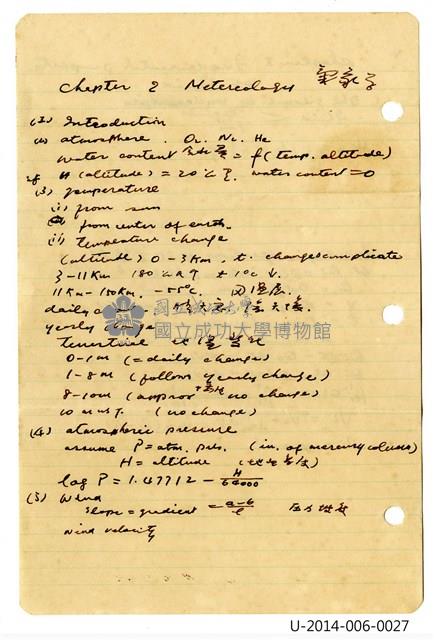 Chapter 2 Metereology 氣象学
(1) Introduction
(2) atmosphere. O₂. N₂. He
water content 含水量 = f(temp. altitude)
if H (altitude) = 20 water content = 0
(3) Temperature
(i) from sun
from center of earth.
(ii) temperature change
(altitude) 0-3Km, t. changes complicate
3-11Km 180 1°c ↓.
11Km- -55°c.
daily
yearly change
terrestrial
0-1m (=daily change)
1-8m (follows yearly change)
8-10m (approx no change)
10 m (no change)
(4) atmospheric pressure
assume P=atm. pres. (in. of mercury column)
H = altitude
log P = 1.47712 - H/64000
(5) Wind
slope = gradient = a-b/l
wind velocity
國立成功大學
國立成功大學博物館
U-2014-006-0027